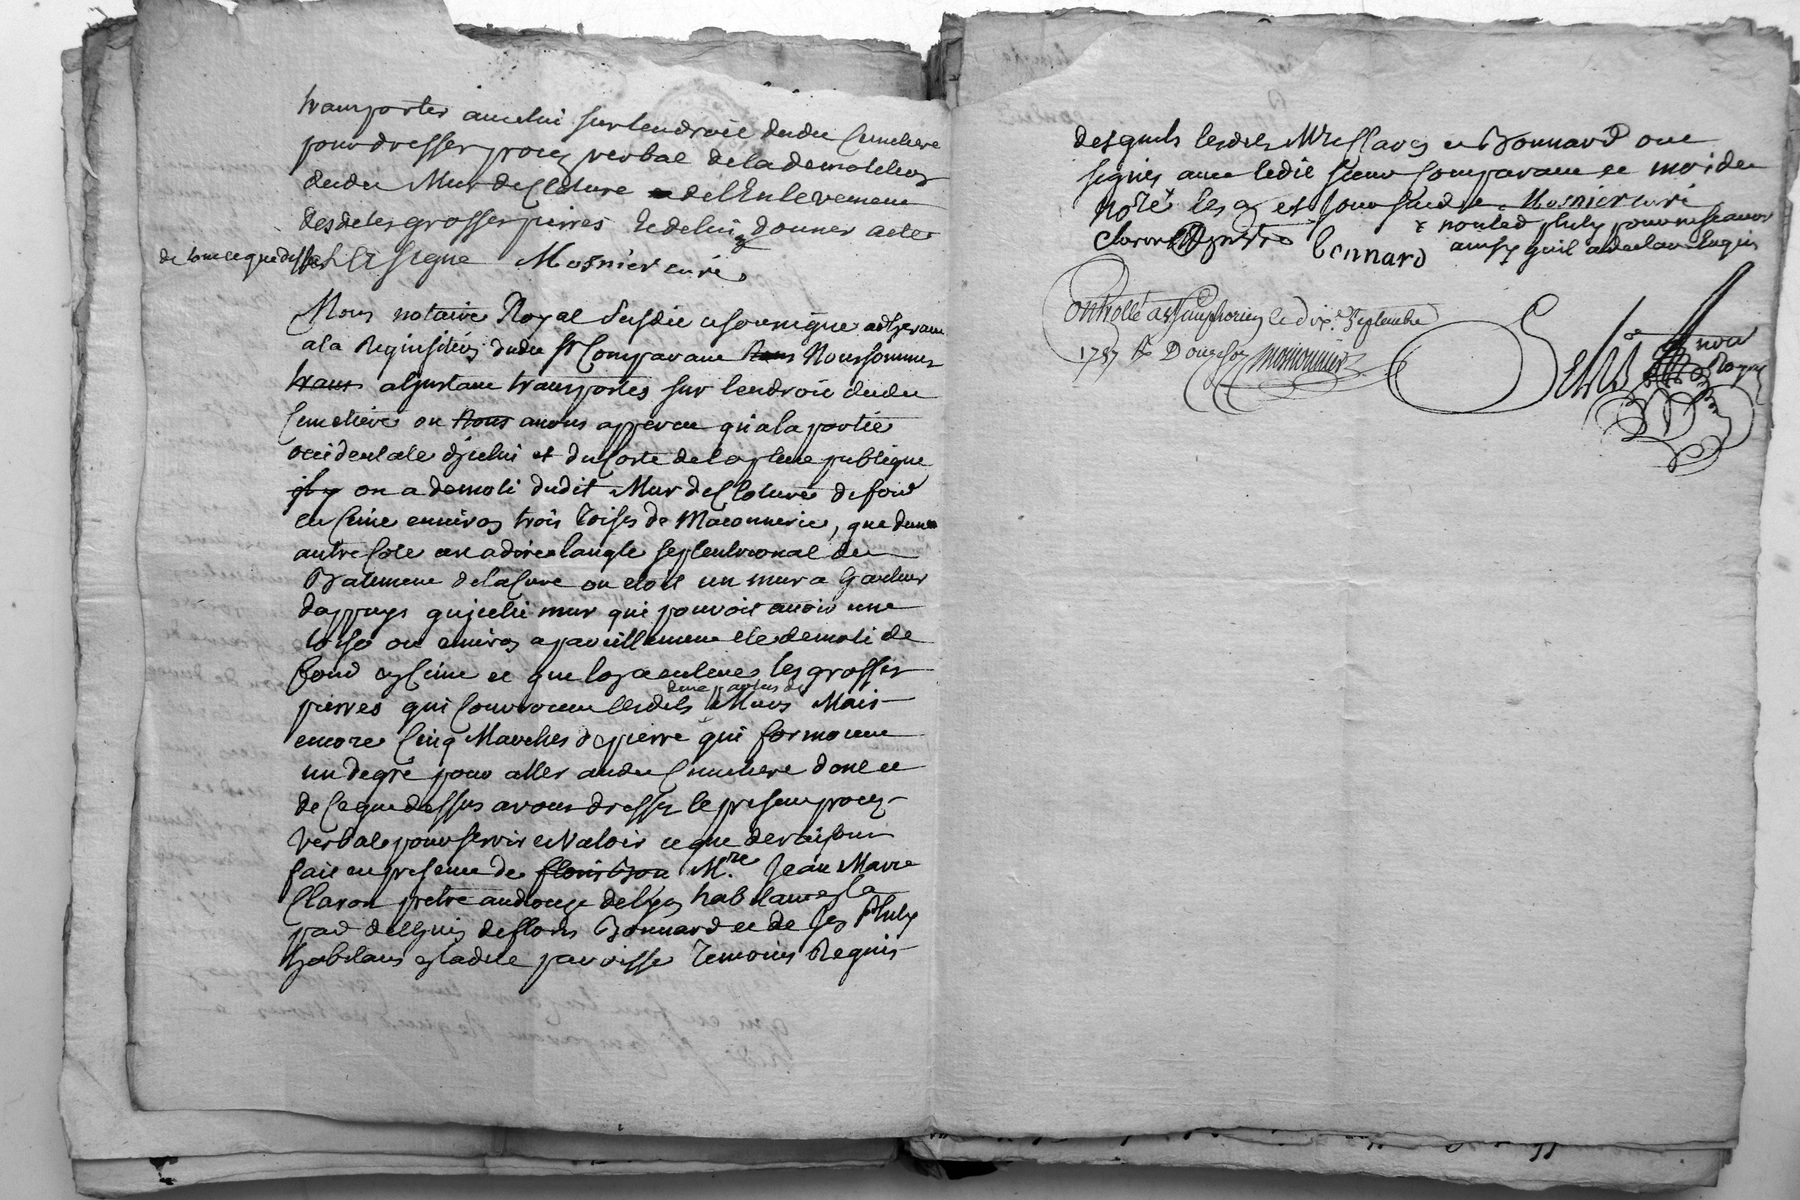 transporter avec lui sur lendroit dudit Cimetiere
pour dresser procez verbal de la demolition
dudit Mur de Cloture de lEnlevement
desdites grosses pierres et de lui donner acte
de tout ce que dessus Et a signé Mosnier curé
Nous notaire Royal susdit et soussigné adherant
a la Requisition dudit Sr Comparant Nous sommes
a linstant transportes sur lendroit dudit
Cimetiere ou nous avons apperçu qu'a la partie
occidentale dicelui et du Coste de la place publique
on a demoli dudit Mur de Cloture de fond
en Cime environ trois toises de Maçonnerie, que dun
autre Coté cest a dire a langle septentrional du
Batiment de la Cure ou etoit un mur a hauteur
dappuys qu'icelui mur qui pouvoit avoir une
toise ou environ a pareillement eté demoli de
fond en Cime et que lon a enlevé les grosses
pierres qui Couvroient lesdits Murs Mais
deux parties de
encore Cinq Marches de pierre qui formoient
un degré pour aller audit Cimetiere dont et
de Ce que dessus avons dressé le present procez
verbal pour servir et valoir ce que de raison
fait en presence de Mre. Jean Marie
Claron pretre du diocese de Lyon habitant en la
de floris Bonnard et de
habitans en ladite parroisse temoins Requis
desquels lesdits Mre Claron et Bonnard ont
signés avec ledit sieur Comparant et moi dit
notre. les an et jour susdits Mosnier curé
et non ledit pour ne sçavoir
Claron prêtre bonnard ainsy qu'il a declaré Enquis
Controllé a St Simphorien le dix 7. Septembre
1787
notre
Royal